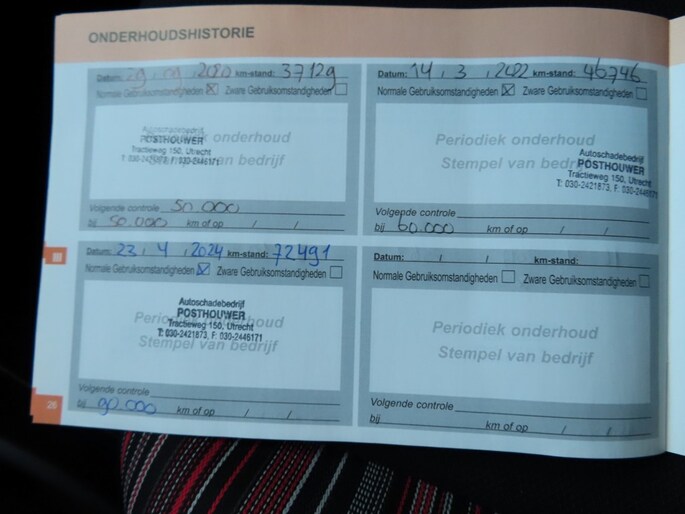 ONDERHOUDSHISTORIE
Datum: 29, 09, 2020 km-stand: 37129
Normale Gebruiksomstandigheden Zware Gebruiksomstandigheden
Periodiek onderhoud
Stempel van bedrijf
Autoschadebedrijf
POSTHOUWER
Tractieweg 150, Utrecht
T: 030-2421873, F: 030-2446171
Volgende controle 50.000
bij 50.000 km of op / /
Datum: 14, 3, 2022 km-stand: 46746
Normale Gebruiksomstandigheden Zware Gebruiksomstandigheden
Periodiek onderhoud
Stempel van bedrijf
Autoschadebedrijf
POSTHOUWER
Tractieweg 150, Utrecht
T: 030-2421873, F: 030-2446171
Volgende controle
bij 60.000 km of op / /
Datum: 23, 4, 2024 km-stand: 72491
Normale Gebruiksomstandigheden Zware Gebruiksomstandigheden
Periodiek onderhoud
Stempel van bedrijf
Autoschadebedrijf
POSTHOUWER
Tractieweg 150, Utrecht
T: 030-2421873, F: 030-2446171
Volgende controle
bij 90.000 km of op / /
Datum: / / km-stand:
Normale Gebruiksomstandigheden Zware Gebruiksomstandigheden
Periodiek onderhoud
Stempel van bedrijf
Volgende controle
bij km of op / /
26